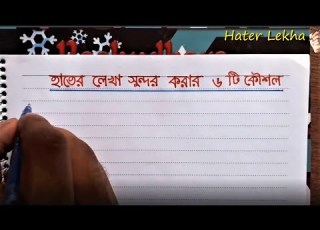 Hater Lekha
হাতের লেখা সুন্দর করার ৬ টি কৌশল